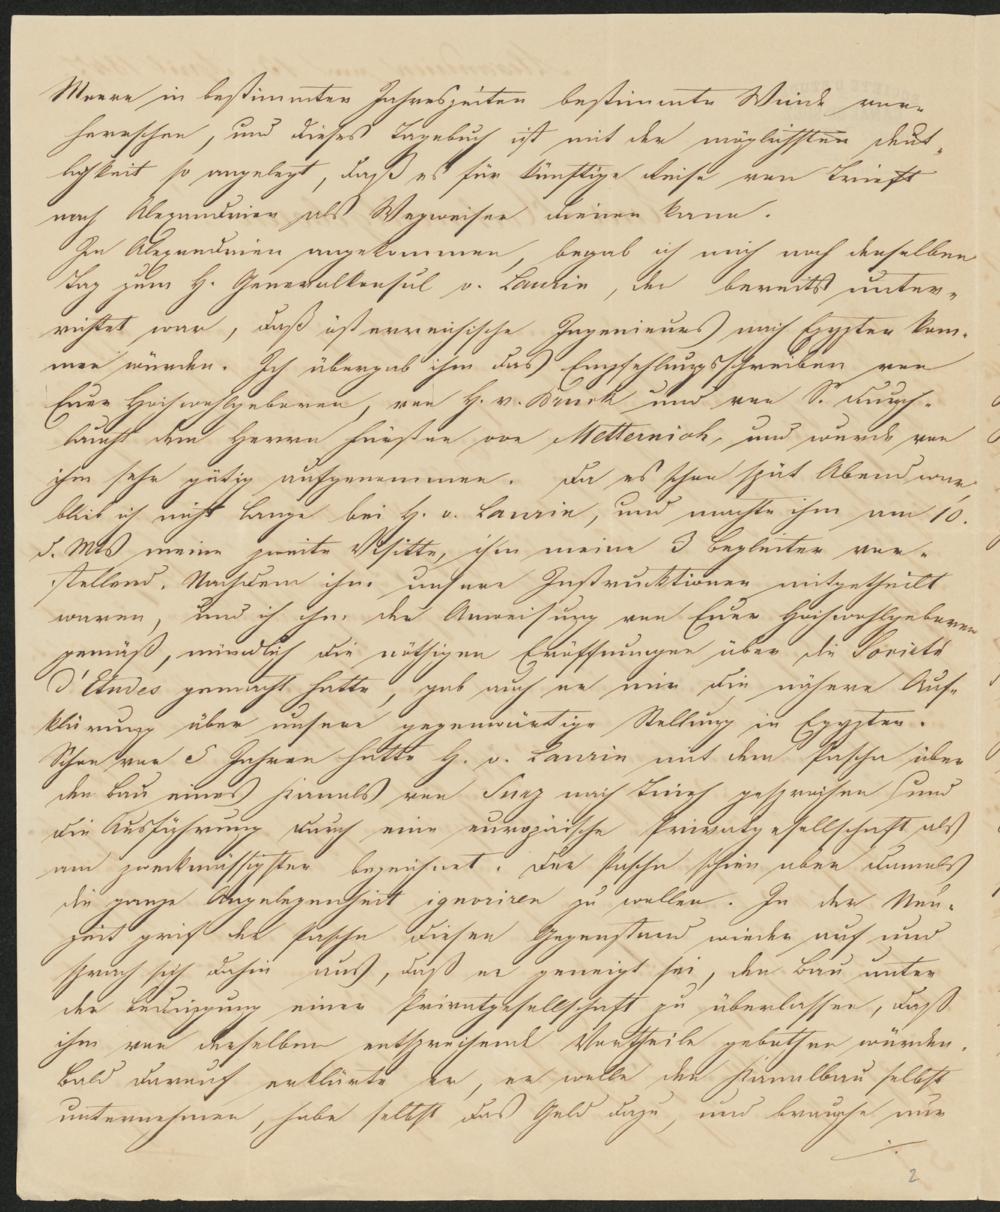 Meere in bestimmten Jahreszeiten bestimmte Winde vor-
herrschen, und dieses Tagebuch ist mit der möglichsten Deut-
lichkeit so angelegt, daß es für künftige Reise von Triest
nach Alexandrien als Wegweiser dienen kann.
In Alexandrien angekommen, begab ich mich noch denselben
Tag zum H. Generalkonsul v. Laurin, der bereits unter-
richtet war, daß österreichische Ingenieurs nach Egypten kom-
men würden. Ich übergab ihm das Empfehlungsschreiben von
Euer Hochwohlgeboren, von H. v. Bruck und von S. Durch-
laucht dem Herrn Fürsten von Metternich, und wurde von
ihm sehr gütig aufgenommen. Da es schon spät Abend war,
blieb ich nicht lange bei H. v. Laurin, und machte ihm am 10.
d. Mts meine zweite Visitte, ihm meine 3 Begleiter vor-
stellend. Nachdem ihm unsere Instruktionen mitgetheilt
waren, und ich ihm der Anweisung von Euer Hochwohlgeboren
gemäß, mündlich die nöthigen Eröffnungen über die Societé
d'Etudes gemacht hatte, gab auch er mir die nähere Auf-
klärung über unsere gegenwärtige Stellung in Egypten.
Schon vor 5 Jahren hatte H. v. Laurin mit dem Pascha über
den Bau eines Kanals von Suez nach Tineh gesprochen und
die Ausführung durch eine europäische Privatgesellschaft als
am zweckmässigsten bezeichnet. Der Pascha schien aber damals
die ganze Angelegenheit ignoriren zu wollen. In der Neu-
zeit griff der Pascha diesen Gegenstand wieder auf und
sprach sich dahin aus, daß er geneigt sei, den Bau unter
der Bedingung einer Privatgesellschaft zu überlassen, daß
ihm von derselben entsprechend Vortheile gebothen würden.
Bald darauf erklärte er, er wolle den Kanalbau selbst
unternehmen, habe selbst das Geld dazu, und brauche nur
./.
2